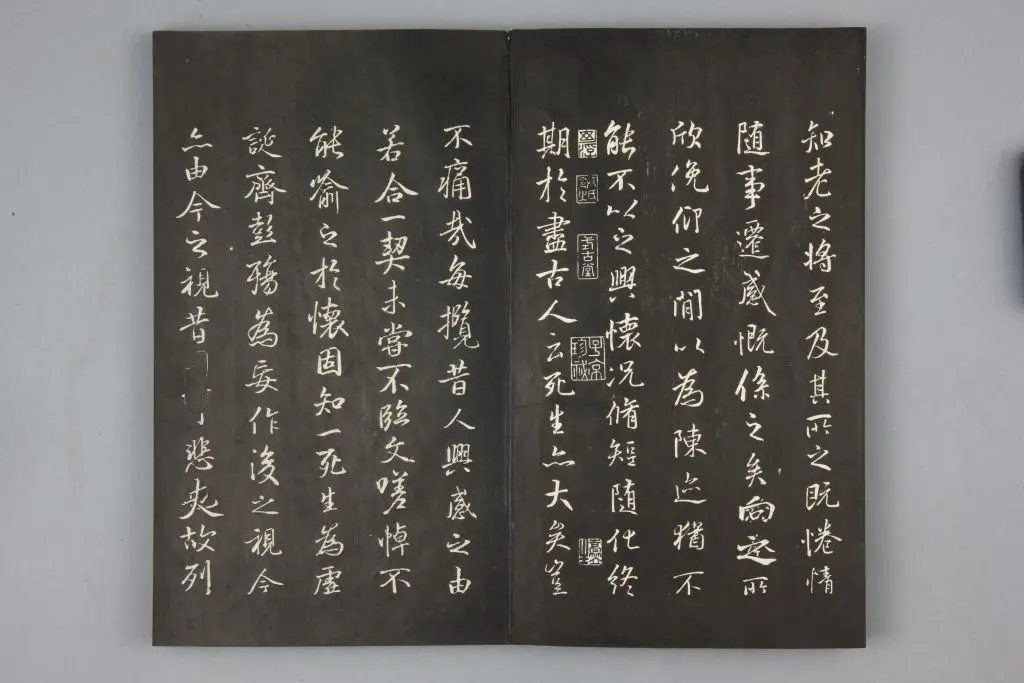 知老之将至及其所之既惓情
随事遷感慨係之矣向之所
欣俛仰之閒以為陳迹猶不
能不以之興懷况脩短随化終
式古堂
子京珍秘
期於盡古人云死生亦大矣豈
不痛哉每攬昔人興感之由
若合一契未嘗不臨文嗟悼不
能喻之於懷固知一死生為虛
誕齊彭殤為妄作後之視今
亦由今之視昔悲夫故列